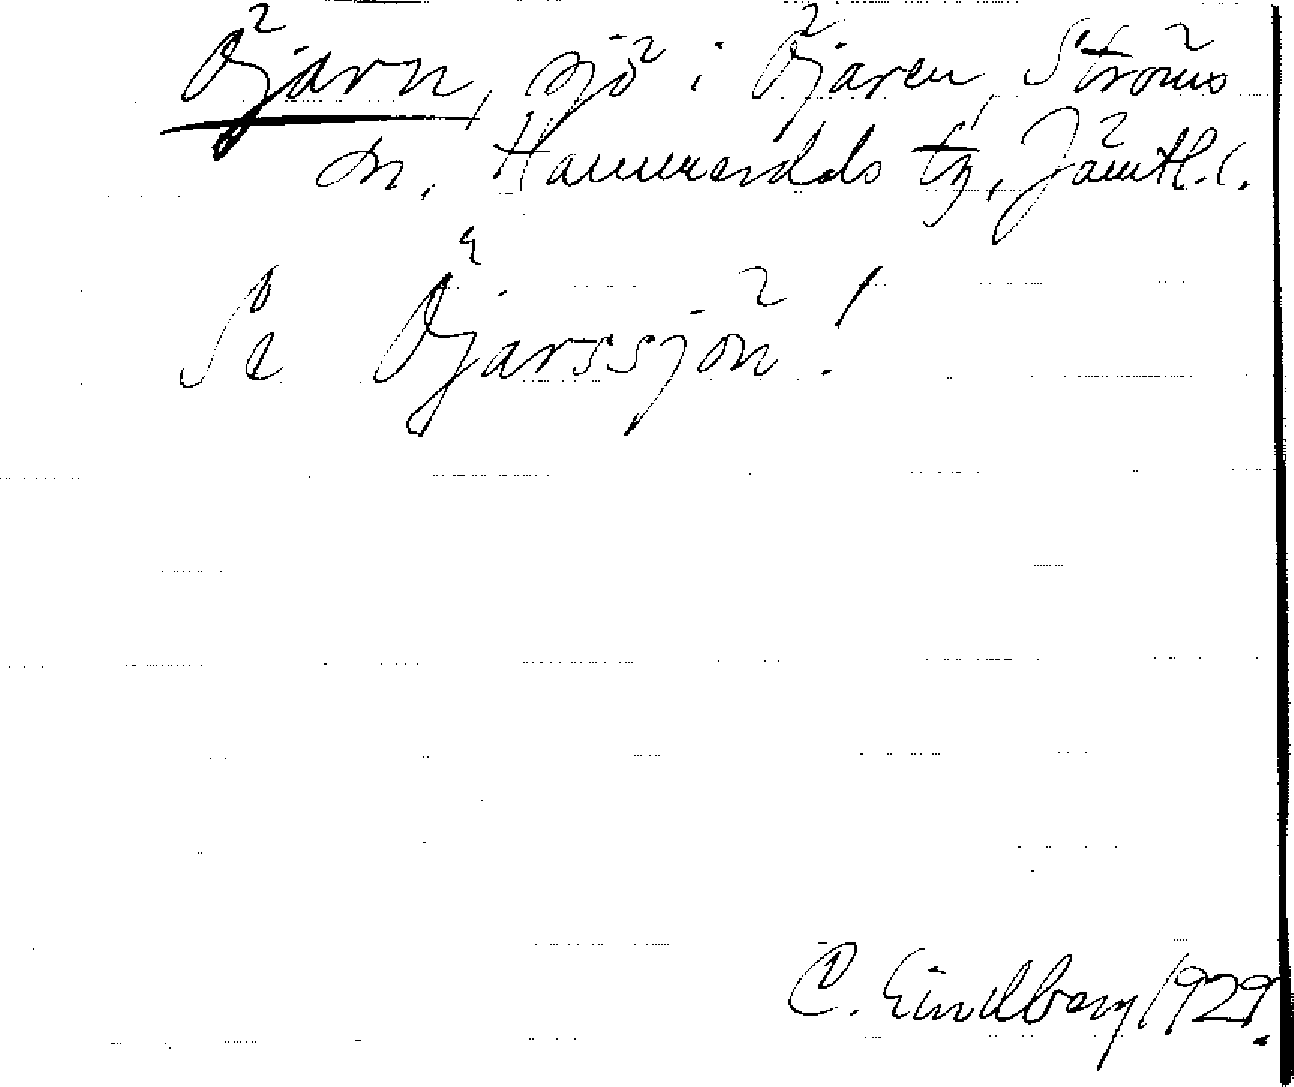 Öjarn, sjö i Öjaren, Ströms
sn, Hammerdals tg, Jämtl. l.
Se Öjarssjön!
C. Lindberg 1929.